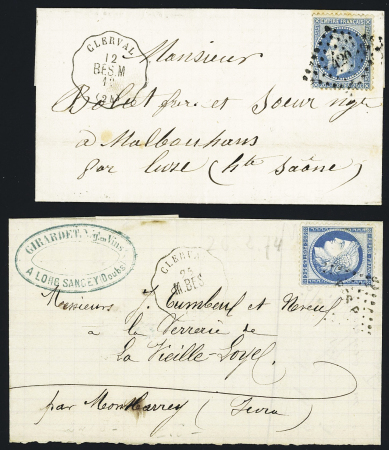 CLERVAL
12
BES.M
EMPIRE FRANÇAIS
Monsieur
Bolut frère et Soeur ngts
à Malbouhans
par Lure (hte Saône)
GIRARDET
A LONG SANCEY (Doubs)
CLERV
24
M.BES
Messieurs
et Neveu
à la Verrerie de
La Vieille Loye
par Montbarrey (Jura)